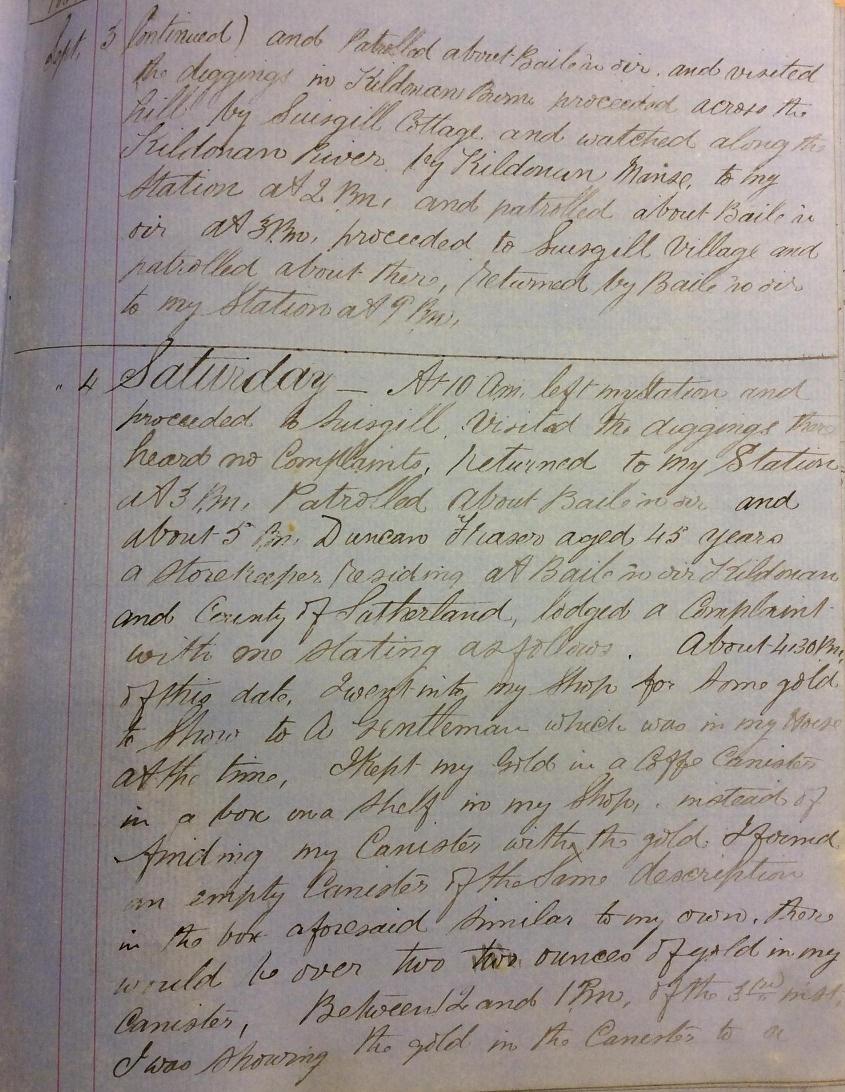 Sept. 3 Continued) and Patrolled about Baile'n oir. and visited
the diggings in Kildonan Burn proceeded across the
hill by Suisgill Cottage and watched along the
Kildonan River by Kildonan Manse, to my
Station at 2 Pm, and patrolled about Baile'n
oir at 3 Pm, proceeded to Suisgill Village and
patrolled about there, returned by Baile'n oir
to my Station at 9 Pm,
" 4 Saturday — At 10 Am, left my Station and
proceeded to Suisgill. Visited the diggings there
heard no Complaints, returned to my Station
at 3 Pm, Patrolled about Baile'n oir and
about 5 Pm, Duncan Fraser aged 45 years
a storekeeper residing at Baile'n oir Kildonan
and County of Sutherland, lodged a Complaint
with me stating as follows. About 4.30 Pm,
of this date, I went into my Shop for some gold
to Show to A Gentleman which was in my House
at the time, I Kept my Gold in a Coffe Canister
in a box on a Shelf in my Shop, instead of
finding my Canister with the gold I found
an empty Canister of the Same description
in the box aforesaid similar to my own. there
would be over two ounces of gold in my
Canister, Between 12 and 1 Pm, of the 3rd inst,
I was showing the gold in the Canister to a